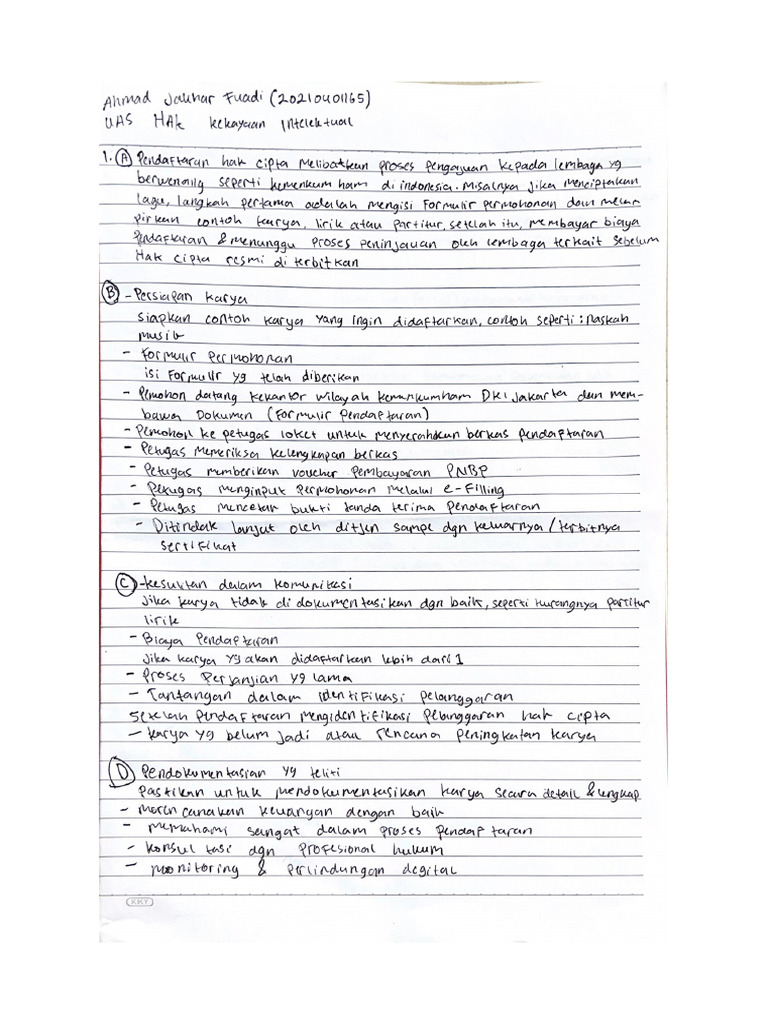 Ahmad Jauhar Fuadi (20210401165)
UAS Hak Kekayaan Intelektual
1. A Pendaftaran hak cipta melibatkan proses pengajuan kepada lembaga yg
berwenang seperti kemenkumham di indonesia. Misalnya jika menciptakan
lagu, langkah pertama adalah mengisi formulir permohonan dan melam
pirkan contoh karya, lirik atau partitur, setelah itu, membayar biaya
Pendaftaran & menunggu proses peninjauan oleh lembaga terkait sebelum
Hak cipta resmi di terbitkan
B - Persiapan karya
siapkan contoh karya yang ingin didaftarkan, contoh seperti : naskah
musik
- Formulir Permohonan
isi formulir yg telah diberikan
- Pemohon datang kekantor wilayah kemenkumham DKI Jakarta dan mem-
bawa Dokumen (Formulir Pendaftaran)
- Pemohon ke petugas loket untuk menyerahkan berkas pendaftaran
- Petugas memeriksa kelengkapan berkas
- Petugas memberikan voucher pembayaran PNBP
- Petugas menginput permohonan melalui e-Filling
- Petugas mencetak bukti tanda terima pendaftaran
- Ditindak lanjut oleh ditjen sampe dgn keluarnya / terbitnya
sertifikat
C - kesulitan dalam komunikasi
Jika karya tidak di dokumentasikan dgn baik, seperti kurangnya partitur
lirik
- Biaya Pendaftaran
Jika karya yg akan didaftarkan lebih dari 1
- Proses Perjanjian yg lama
- Tantangan dalam identifikasi pelanggaran
setelah pendaftaran mengidentifikasi pelanggaran hak cipta
- karya yg belum jadi atau rencana peningkatan karya
D Pendokumentasian yg teliti
Pastikan untuk mendokumentasikan karya secara detail & lengkap
- merencanakan keuangan dengan baik
- memahami sangat dalam proses pendaftaran
- konsultasi dgn profesional hukum
- monitoring & perlindungan degital
KKY